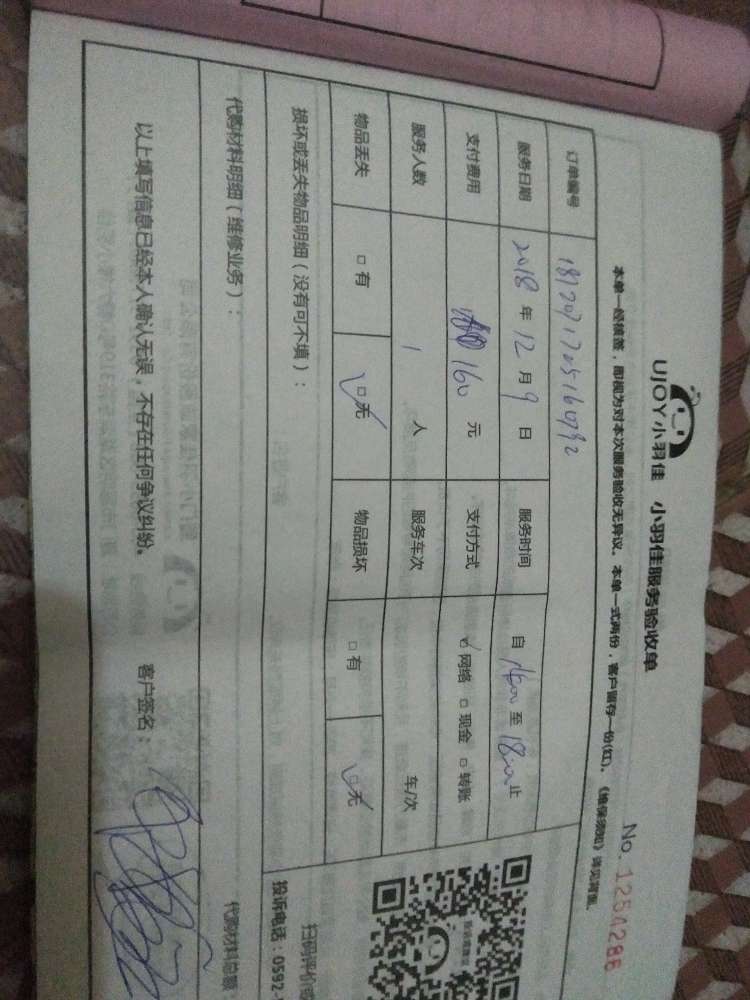 UJOY小羽佳 小羽佳服务验收单
No. 1254286
本单一经核签，即视为对本次服务验收无异议。本单一式两份，客户留存一份(红)。《维保须知》详见背面。
订单编号
服务日期 2018 年 12 月 9 日 服务时间 自 至 止
支付费用 160 元 支付方式 ☑网络 □现金 □转账
服务人数 1 人 服务车次 车/次
物品丢失 □有 ☑无 物品损坏 □有 ☑无
损坏或丢失物品明细（没有可不填）：
扫码评价
投诉电话：0592-
代购材料明细（维修业务）：
代购材料总额
以上填写信息已经本人确认无误，不存在任何争议纠纷。 客户签名：